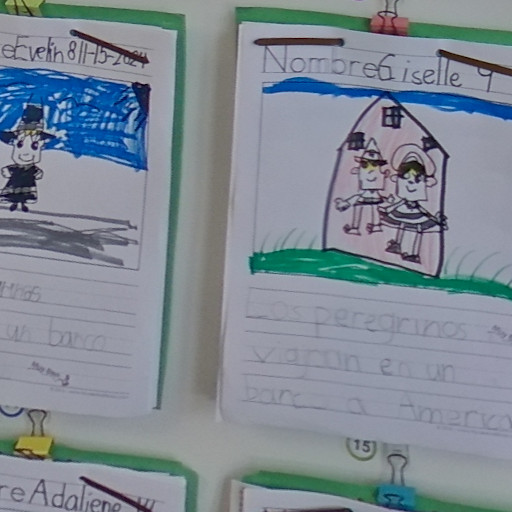 Evelin 8 11-15-2024
un barco
Nombre Giselle 9
Los peregrinos
viajaron en un
barc a America
15
re Adaliene